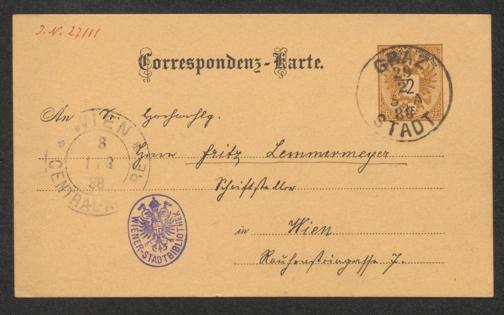 J. N. 27111
Correspondenz-Karte.
GRAZ
29
2
5 A
88
STADT
An Sr. Hochwohlg.
Herrn Fritz Lemmermeyer
Schriftsteller
in Wien
Rauhensteingasse 7.
WIEN
8
1 3
88
CENTRAL
WIENER-STADTBIBLIOTHEK